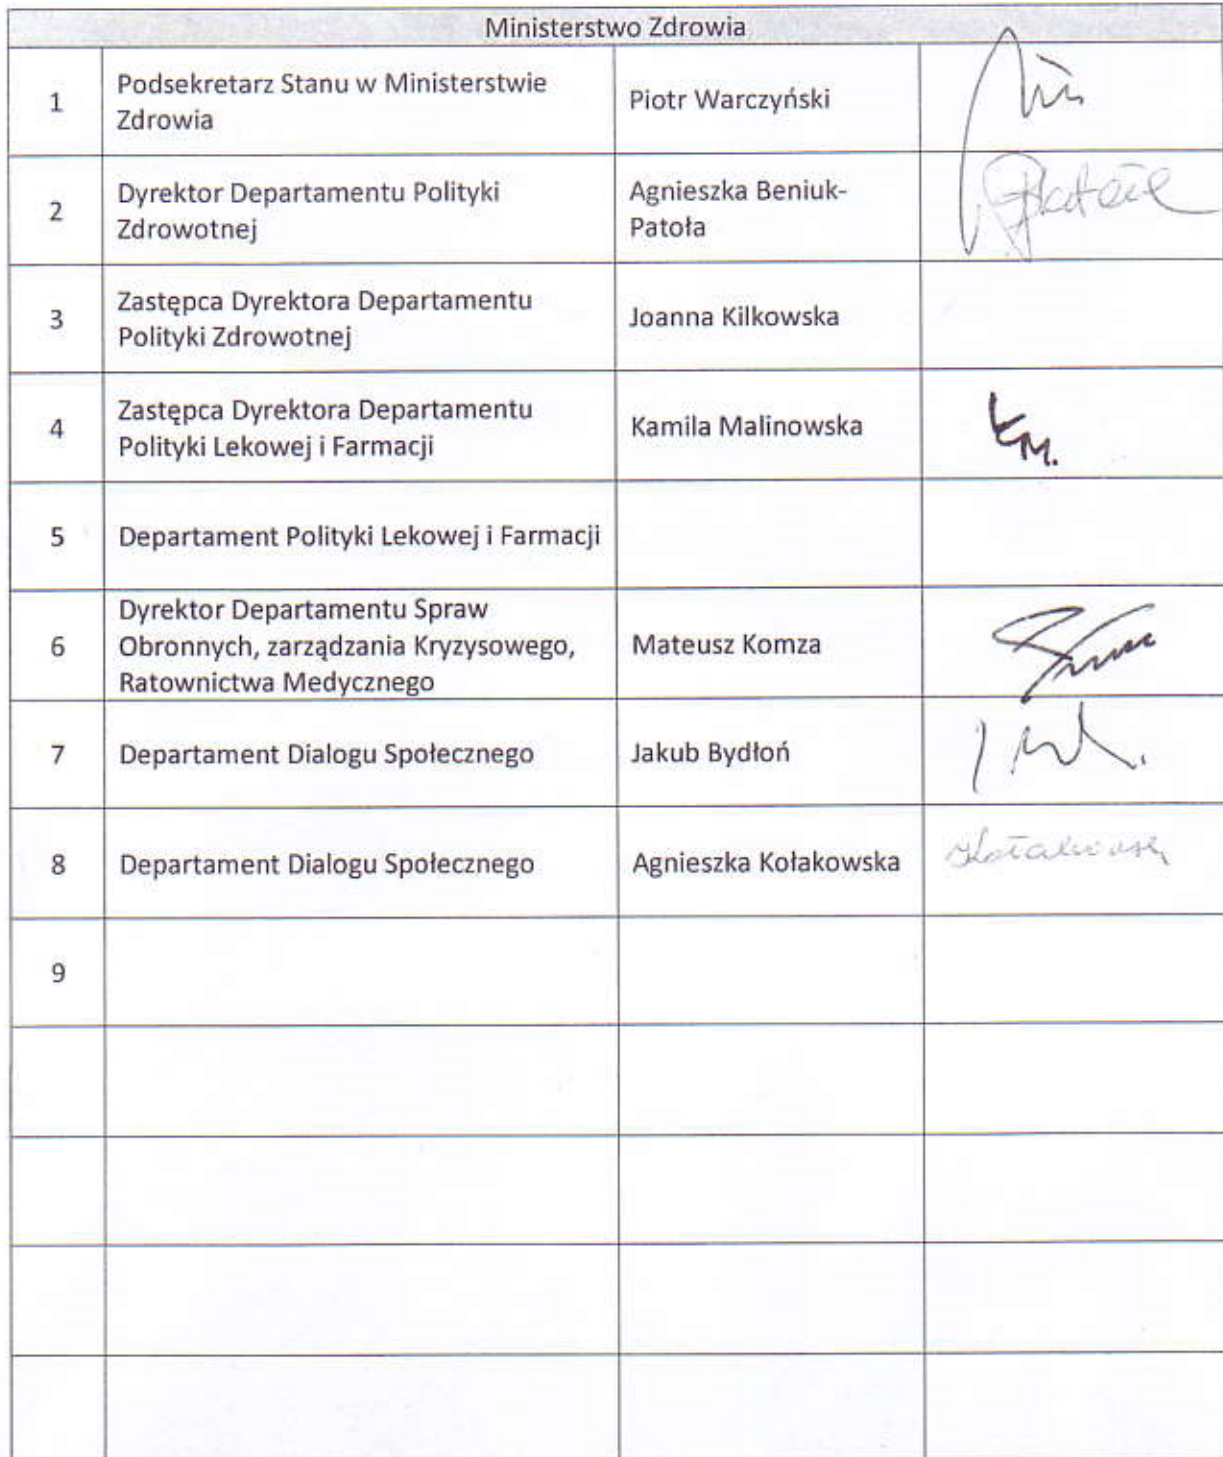 Ministerstwo Zdrowia
1
Podsekretarz Stanu w Ministerstwie
Zdrowia
Piotr Warczyński
2
Dyrektor Departamentu Polityki
Zdrowotnej
Agnieszka Beniuk-
Patoła
3
Zastępca Dyrektora Departamentu
Polityki Zdrowotnej
Joanna Kilkowska
4
Zastępca Dyrektora Departamentu
Polityki Lekowej i Farmacji
Kamila Malinowska
KM.
5
Departament Polityki Lekowej i Farmacji
6
Dyrektor Departamentu Spraw
Obronnych, zarządzania Kryzysowego,
Ratownictwa Medycznego
Mateusz Komza
7
Departament Dialogu Społecznego
Jakub Bydłoń
8
Departament Dialogu Społecznego
Agnieszka Kołakowska
9